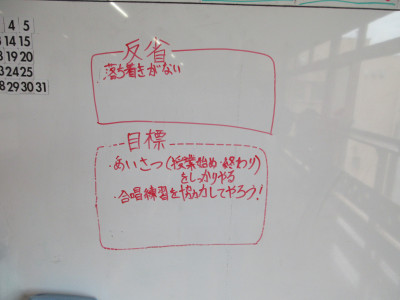 4 5
14 15
18 19 20
23 24 25
28 29 30 31
反省
落ち着きがない
目標
・あいさつ(授業始め・終わり)
をしっかりやる
・合唱練習を協力してやろう!